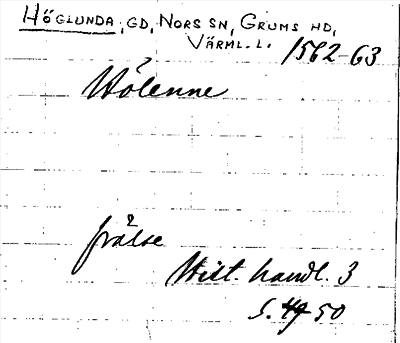 HÖGLUNDA, GD, NORS SN, GRUMS HD,
VÄRML. L. 1562-63
Hölenne
frälse
Hist. handl. 3
S. 49 50